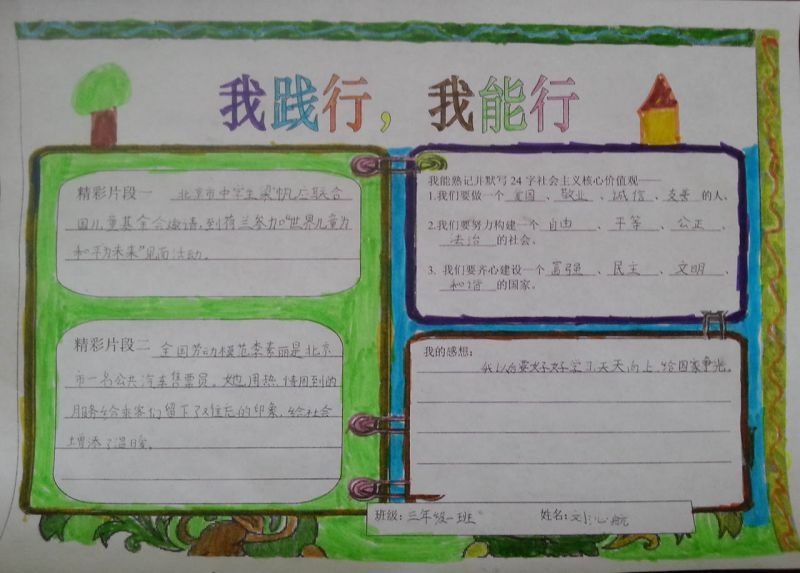 我践行，我能行
精彩片段一 北京市中学生梁帆应联合
国儿童基金会邀请，到荷兰参加“世界儿童为
和平为未来”见面活动。
精彩片段二 全国劳动模范李素丽是北京
市一名公共汽车售票员。她用热情周到的
服务给乘客们留下了难忘的印象，给社会
增添了温暖。
我能熟记并默写24字社会主义核心价值观——
1.我们要做一个 爱国 、 敬业 、 诚信 、 友善 的人、
2.我们要努力构建一个 自由 、 平等 、 公正 、
法治 的社会、
3. 我们要齐心建设一个 富强 、 民主 、 文明 、
和谐 的国家。
我的感想：
我以后要好好学习天天向上，给国家争光。
班级：三年级一班 姓名：刘沁航